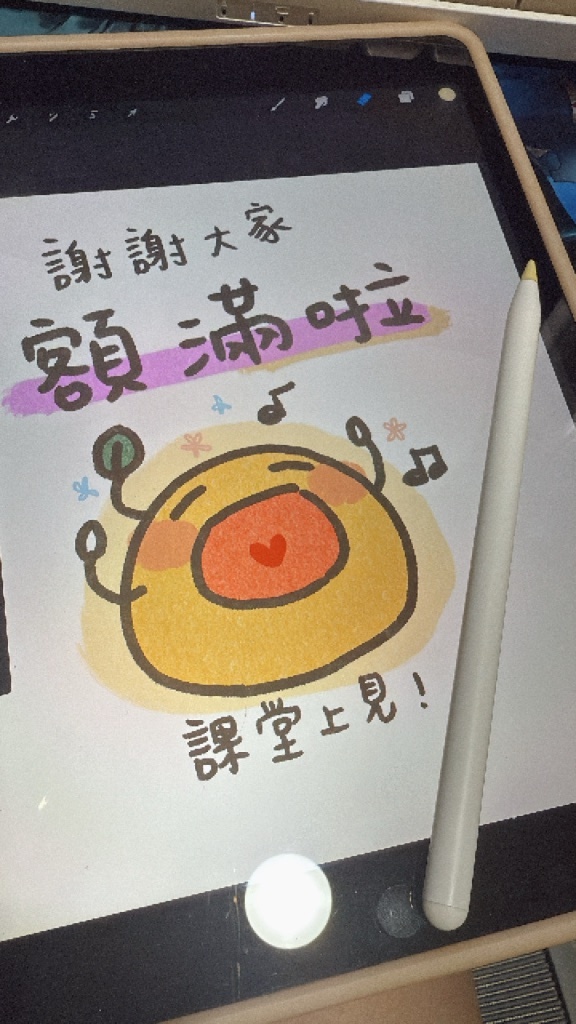 謝謝大家
額滿啦
課堂上見！